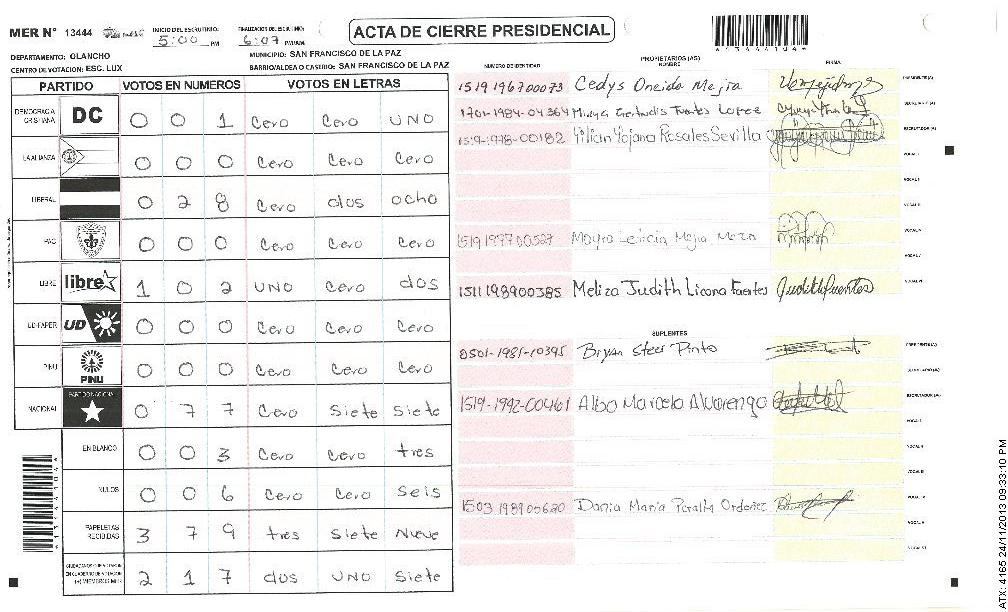 MER N° 13444
INICIO DEL ESCRUTINIO: 5:00 PM
FINALIZACION DEL ESCRUTINIO: 6:07 PM/AM
ACTA DE CIERRE PRESIDENCIAL
DEPARTAMENTO: OLANCHO
MUNICIPIO: SAN FRANCISCO DE LA PAZ
CENTRO DE VOTACION: ESC. LUX
BARRIO/ALDEA O CASERIO: SAN FRANCISCO DE LA PAZ
PARTIDO VOTOS EN NUMEROS VOTOS EN LETRAS
DEMOCRACIA CRISTIANA DC 0 0 1 Cero Cero UNO
LA ALIANZA 0 0 0 Cero Cero Cero
LIBERAL 0 2 8 Cero dos ocho
PAC 0 0 0 Cero Cero Cero
LIBRE libre 1 0 2 UNO Cero dos
UD-FAPER UD 0 0 0 Cero Cero Cero
PINU PINU 0 0 0 Cero Cero Cero
NACIONAL PARTIDO NACIONAL 0 7 7 Cero Siete Siete
EN BLANCO 0 0 3 Cero Cero tres
NULOS 0 0 6 Cero Cero Seis
PAPELETAS RECIBIDAS 3 7 9 tres Siete Nueve
CIUDADANOS QUE VOTARON EN CUADERNO DE VOTACION (+) MIEMBROS MER 2 1 7 dos UNO Siete
PROPIETARIOS (AS)
NUMERO DE IDENTIDAD NOMBRE FIRMA
1519 1967 00073 Cedys Oneida Mejia PRESIDENTE(A)
1701-1984-04364 Mirya Gertrudis Fuentes Lopez SECRETARIO (A)
1519-1978-00182 Yilian Yojana Rosales Sevilla ESCRUTADOR (A)
VOCAL I
VOCAL II
VOCAL III
1519 1977 00527 Mayra Leticia Mejia Meza VOCAL IV
VOCAL V
1511 1989 00385 Meliza Judith Licona Fuentes Judith Fuentes VOCAL VI
SUPLENTES
0501-1981-10395 Bryan Steer Pinto PRESIDENTE(A)
SECRETARIO (A)
1519-1992-00461 Alba Marcela Alvarenga ESCRUTADOR (A)
VOCAL I
VOCAL II
VOCAL III
1503 1989 00620 Dania Maria Peralta Ordeñez VOCAL IV
VOCAL V
VOCAL VI
ATX: 4165 24/11/2013 09:33:10 PM